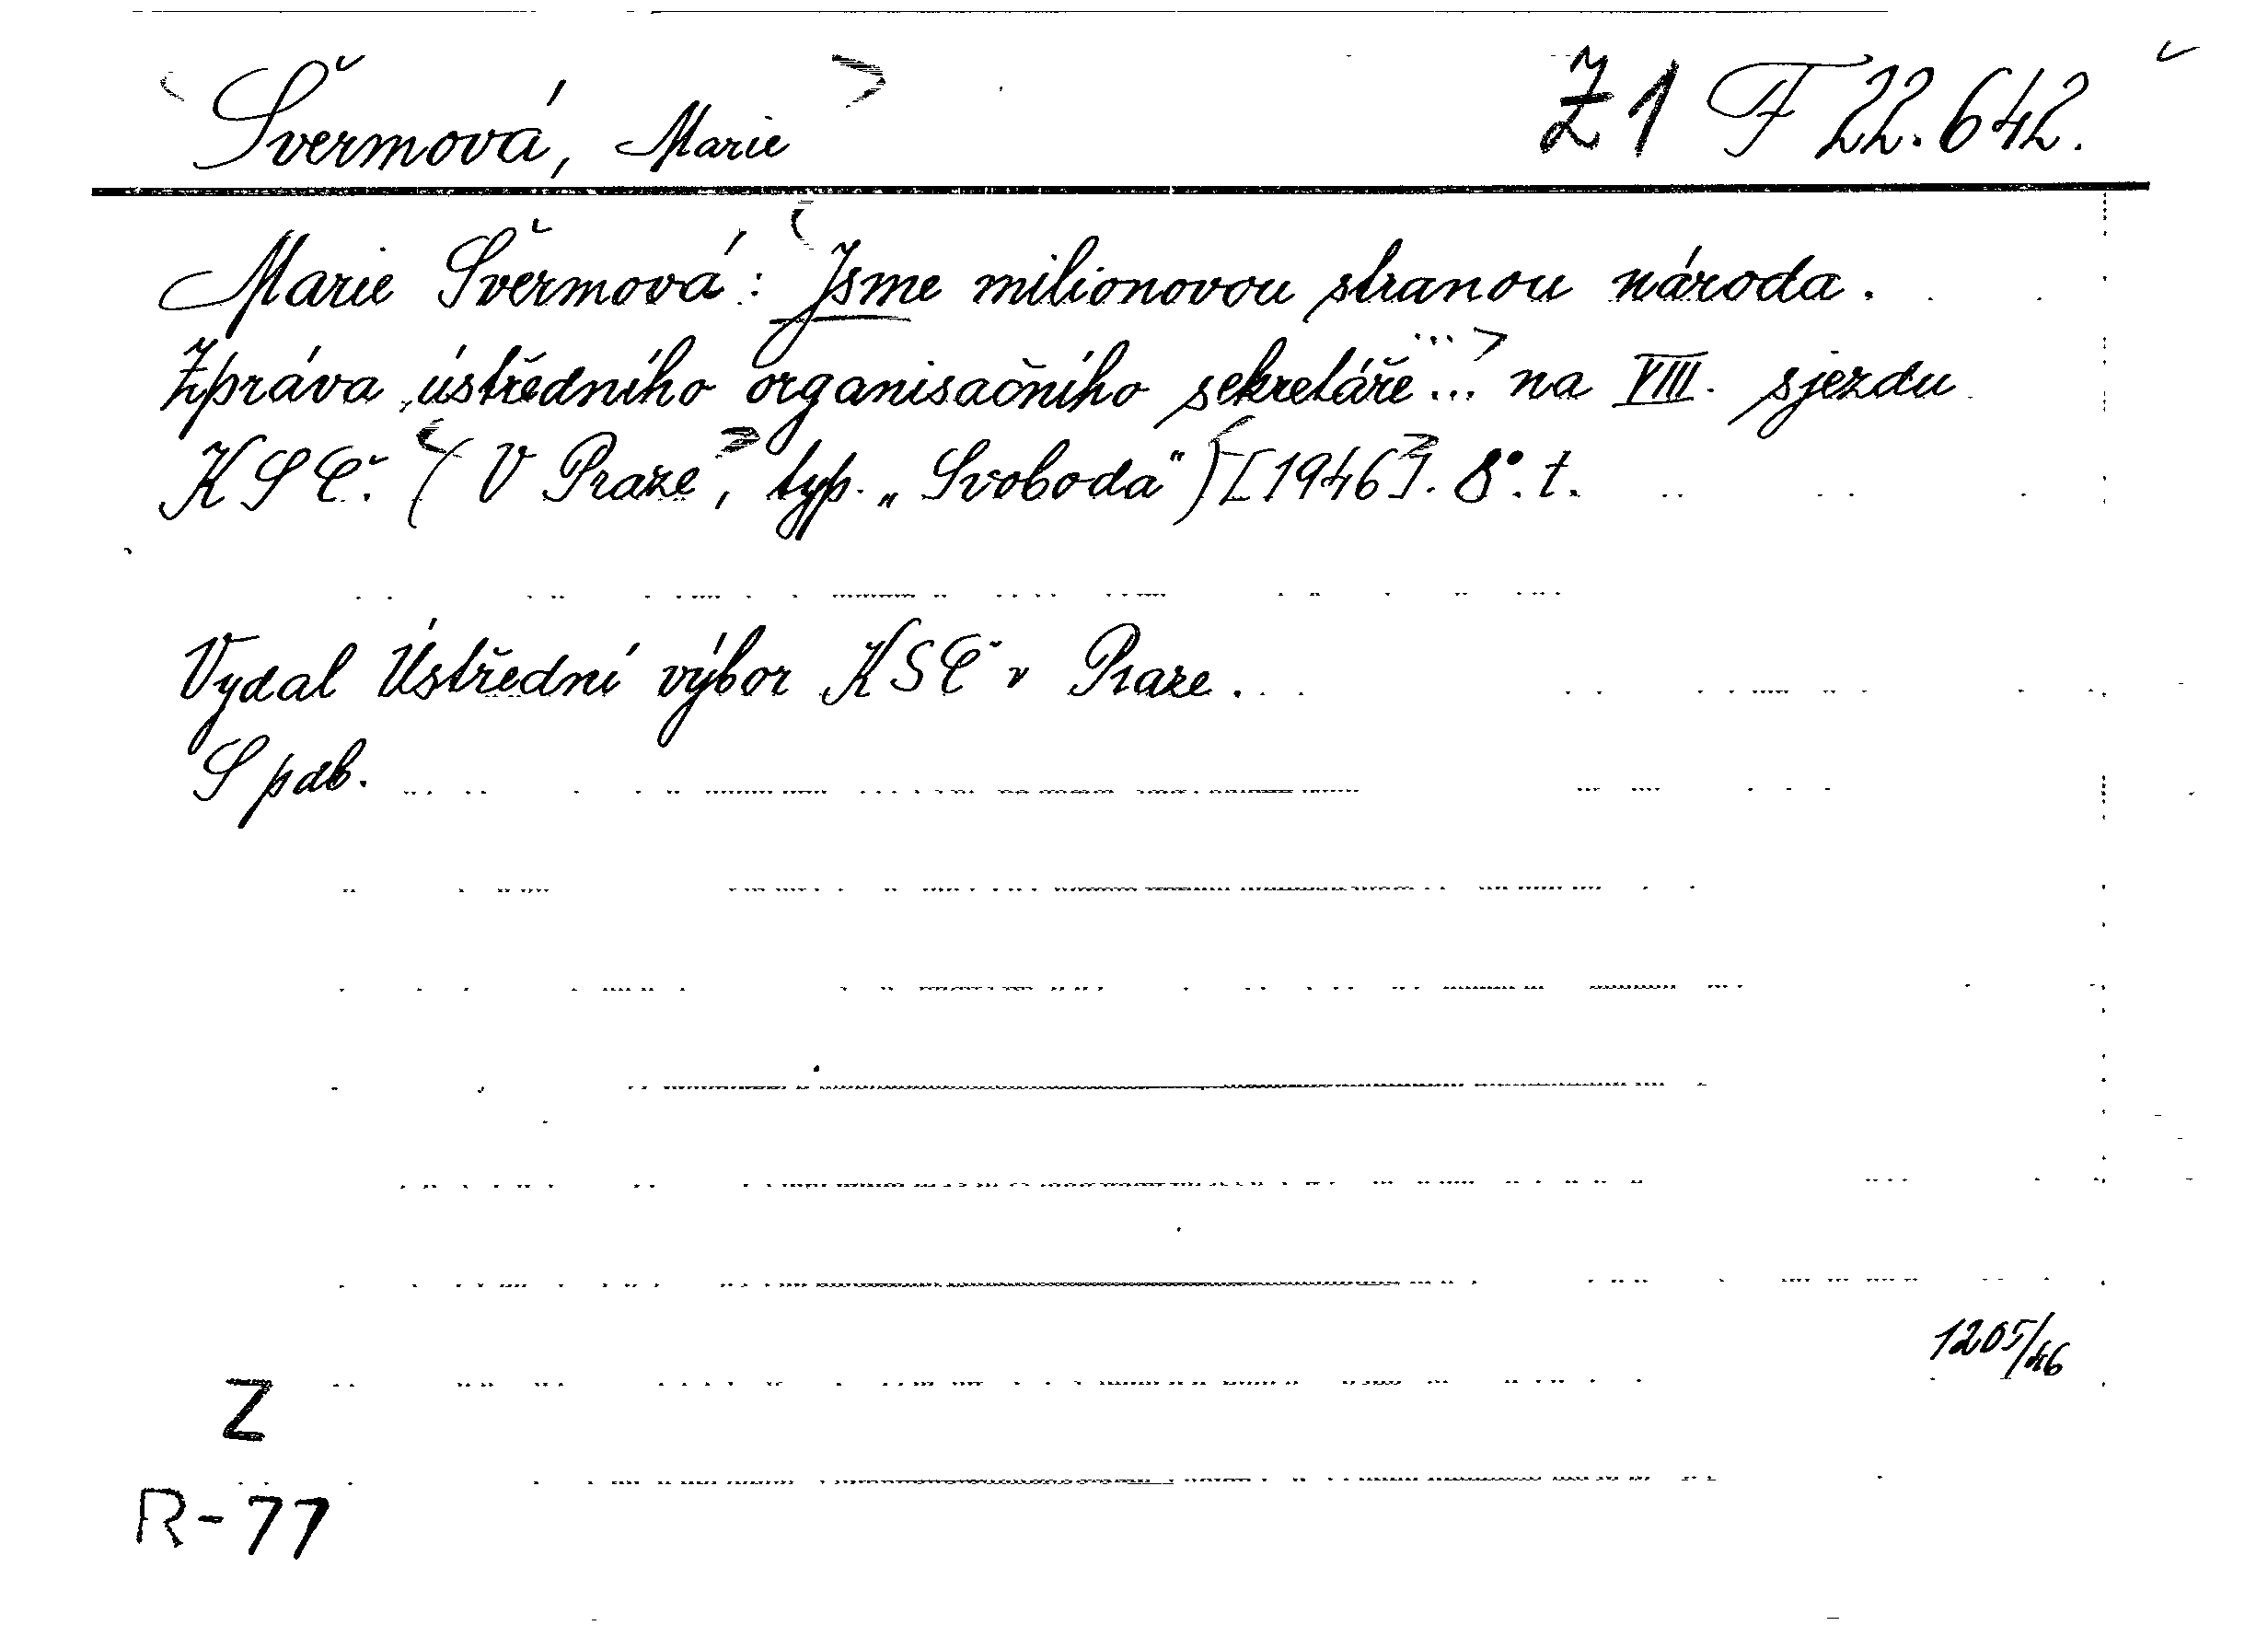 Švermová, Marie Z 1 F 22.642.
Marie Švermová: Jsme milionovou stranou národa.
Zpráva ústředního organisačního sekretáře... na VIII. sjezdu
KSČ. (V Praze, typ. „Svoboda") [1946]. 8°. t.
Vydal Ústřední výbor KSČ v Praze.
S pdb.
1205/46
Z
R-77